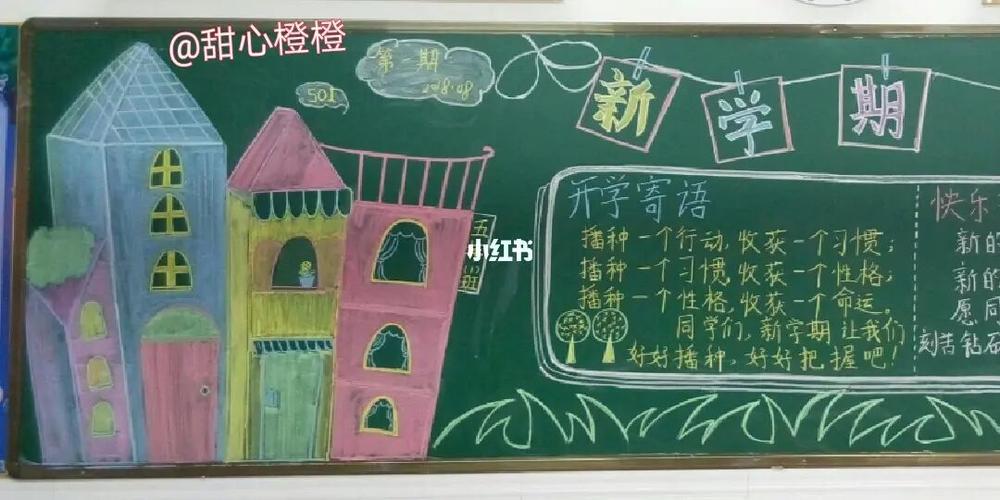 @甜心橙橙
第一期
2018.08
501
新学期
五(1)班
小红书
开学寄语
播种一个行动,收获一个习惯;
播种一个习惯,收获一个性格;
播种一个性格,收获一个命运。
同学们,新学期让我们
好好播种,好好把握吧!
快乐
新的
新的
愿同
刻苦钻石